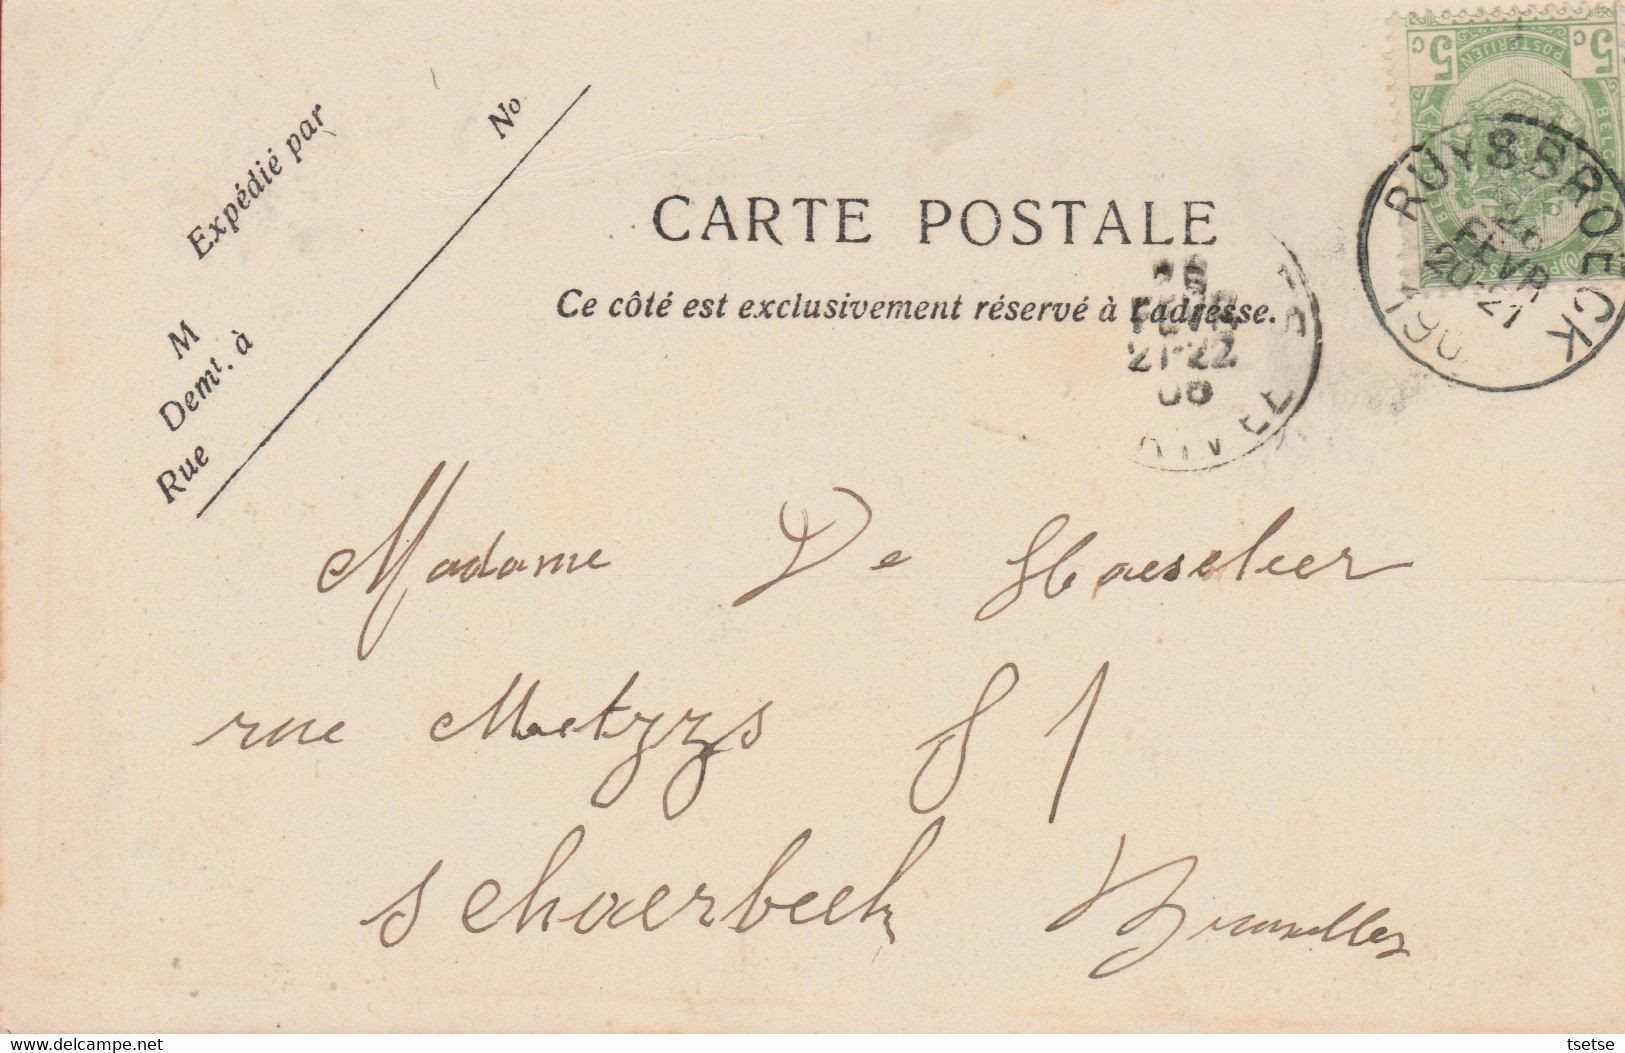 Expédié par
No
M
Demt. à
Rue
CARTE POSTALE
Ce côté est exclusivement réservé à l'adresse.
5c 5c
POSTERIJEN
RUYSBROECK
26
FEVR
20-21
FEVR
21-22
08
Madame De
rue Metzys 81
Schaerbeek Bruxelles
delcampe.net
tsetse